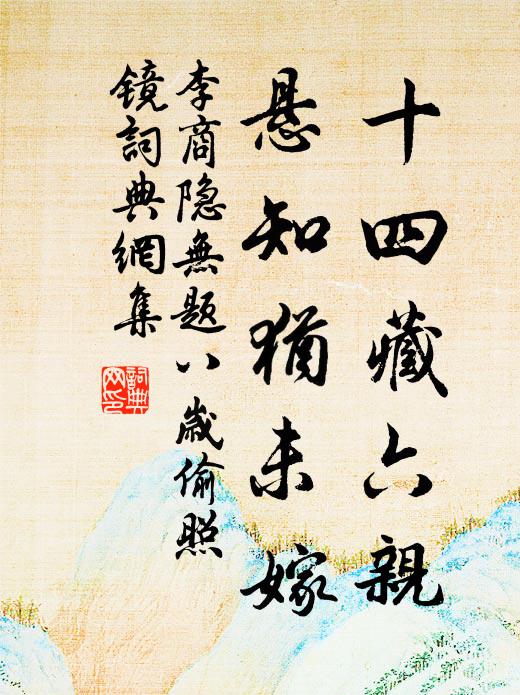 十四藏六親
悬知猶未嫁
李商隐無题八歲偷照
鏡詞典網集
詞典
网印